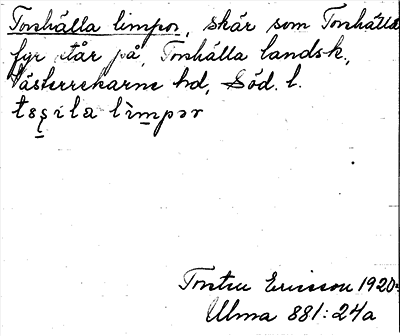 Torshälla limpor, skär som Torshälla
fyr står på, Torshälla landsk.,
Västerrekarne hd, Söd. l.
limpər
Torsten Ericsson 1920-
Ulma 881:24a